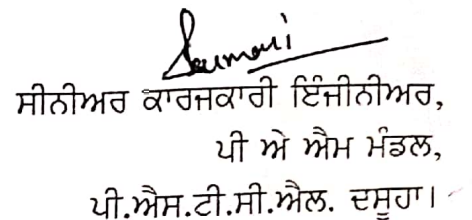 ਸੀਨੀਅਰ ਕਾਰਜਕਾਰੀ ਇੰਜੀਨੀਅਰ,
ਪੀ ਐ ਐਮ ਮੰਡਲ,
ਪੀ.ਐਸ.ਟੀ.ਸੀ.ਐਲ. ਦਸੂਹਾ।